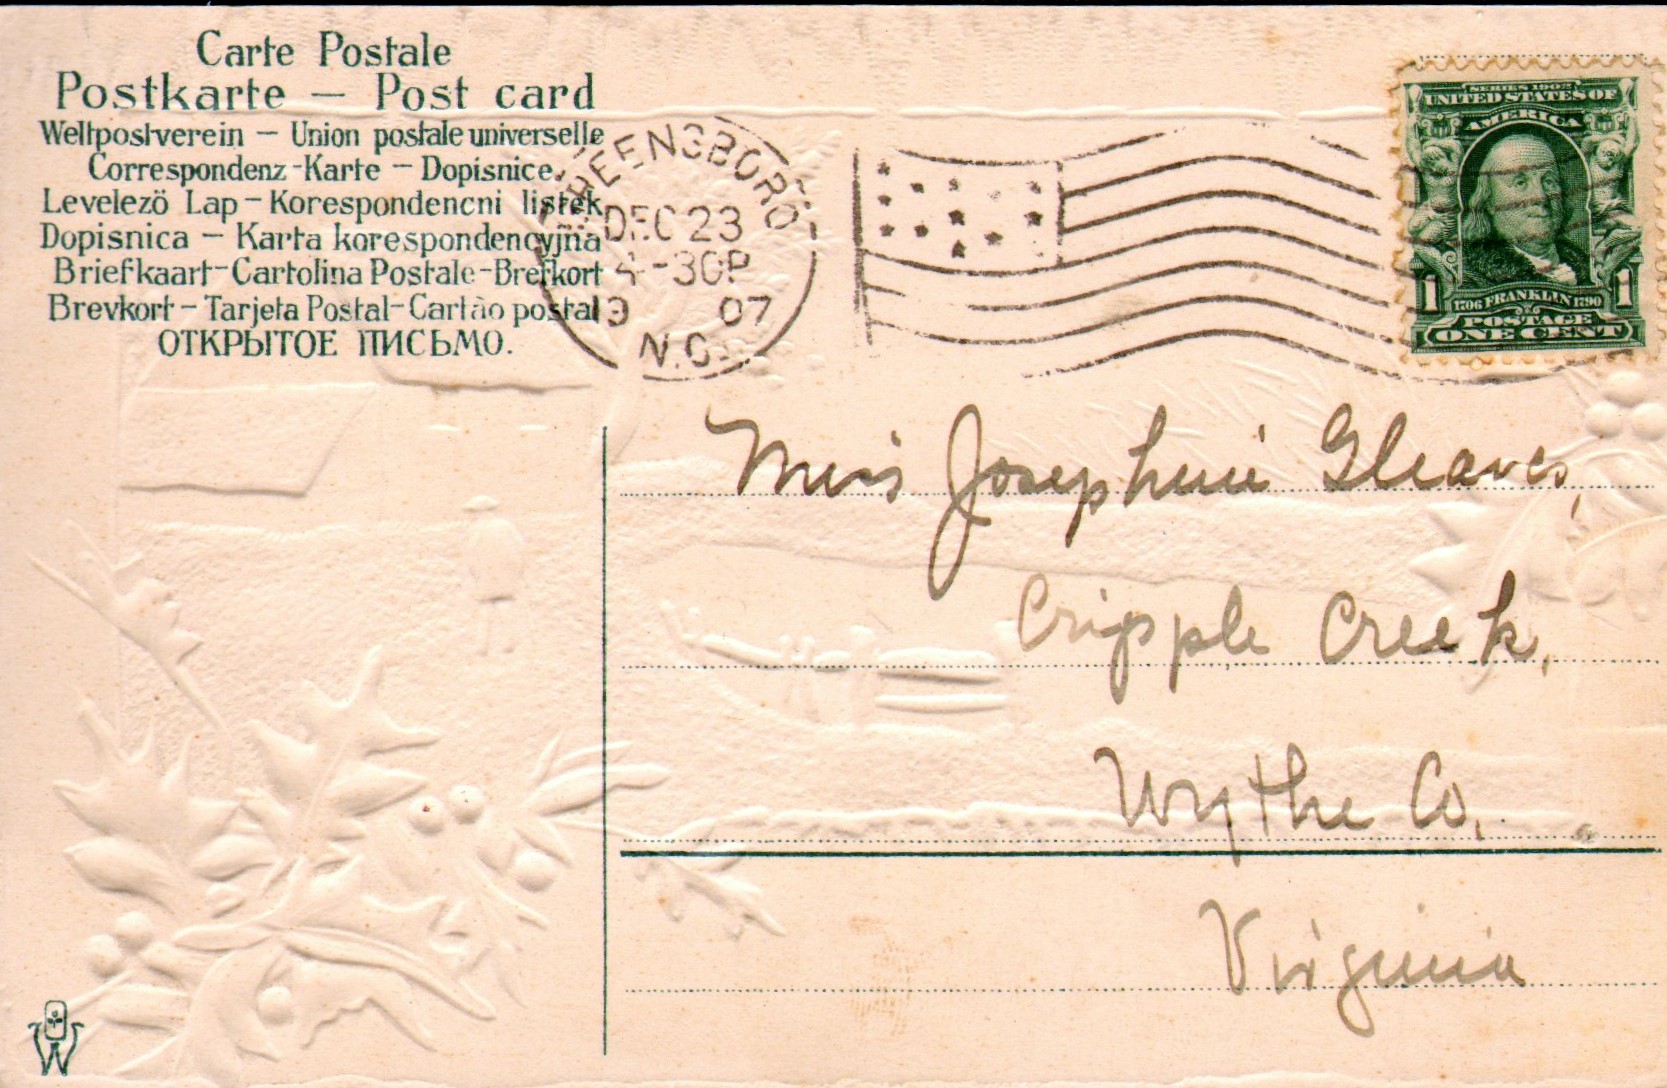 Carte Postale
Postkarte — Post card
Weltpostverein — Union postale universelle
Correspondenz-Karte — Dopisnice.
Levelezö Lap — Korespondencni listek
Dopisnica — Karta korespondencyjna
Briefkaart-Cartolina Postale-Brefkort
Brevkort — Tarjeta Postal-Cartão postal
ОТКРЫТОЕ ПИСЬМО.
GREENSBORO
DEC 23
4-30P
1907
N.C.
SERIES 1902
UNITED STATES OF
AMERICA
1 1
1706 FRANKLIN 1790
POSTAGE
ONE CENT
Miss Josephine Gleaves,
Cripple Creek,
Wythe Co.
Virginia
W